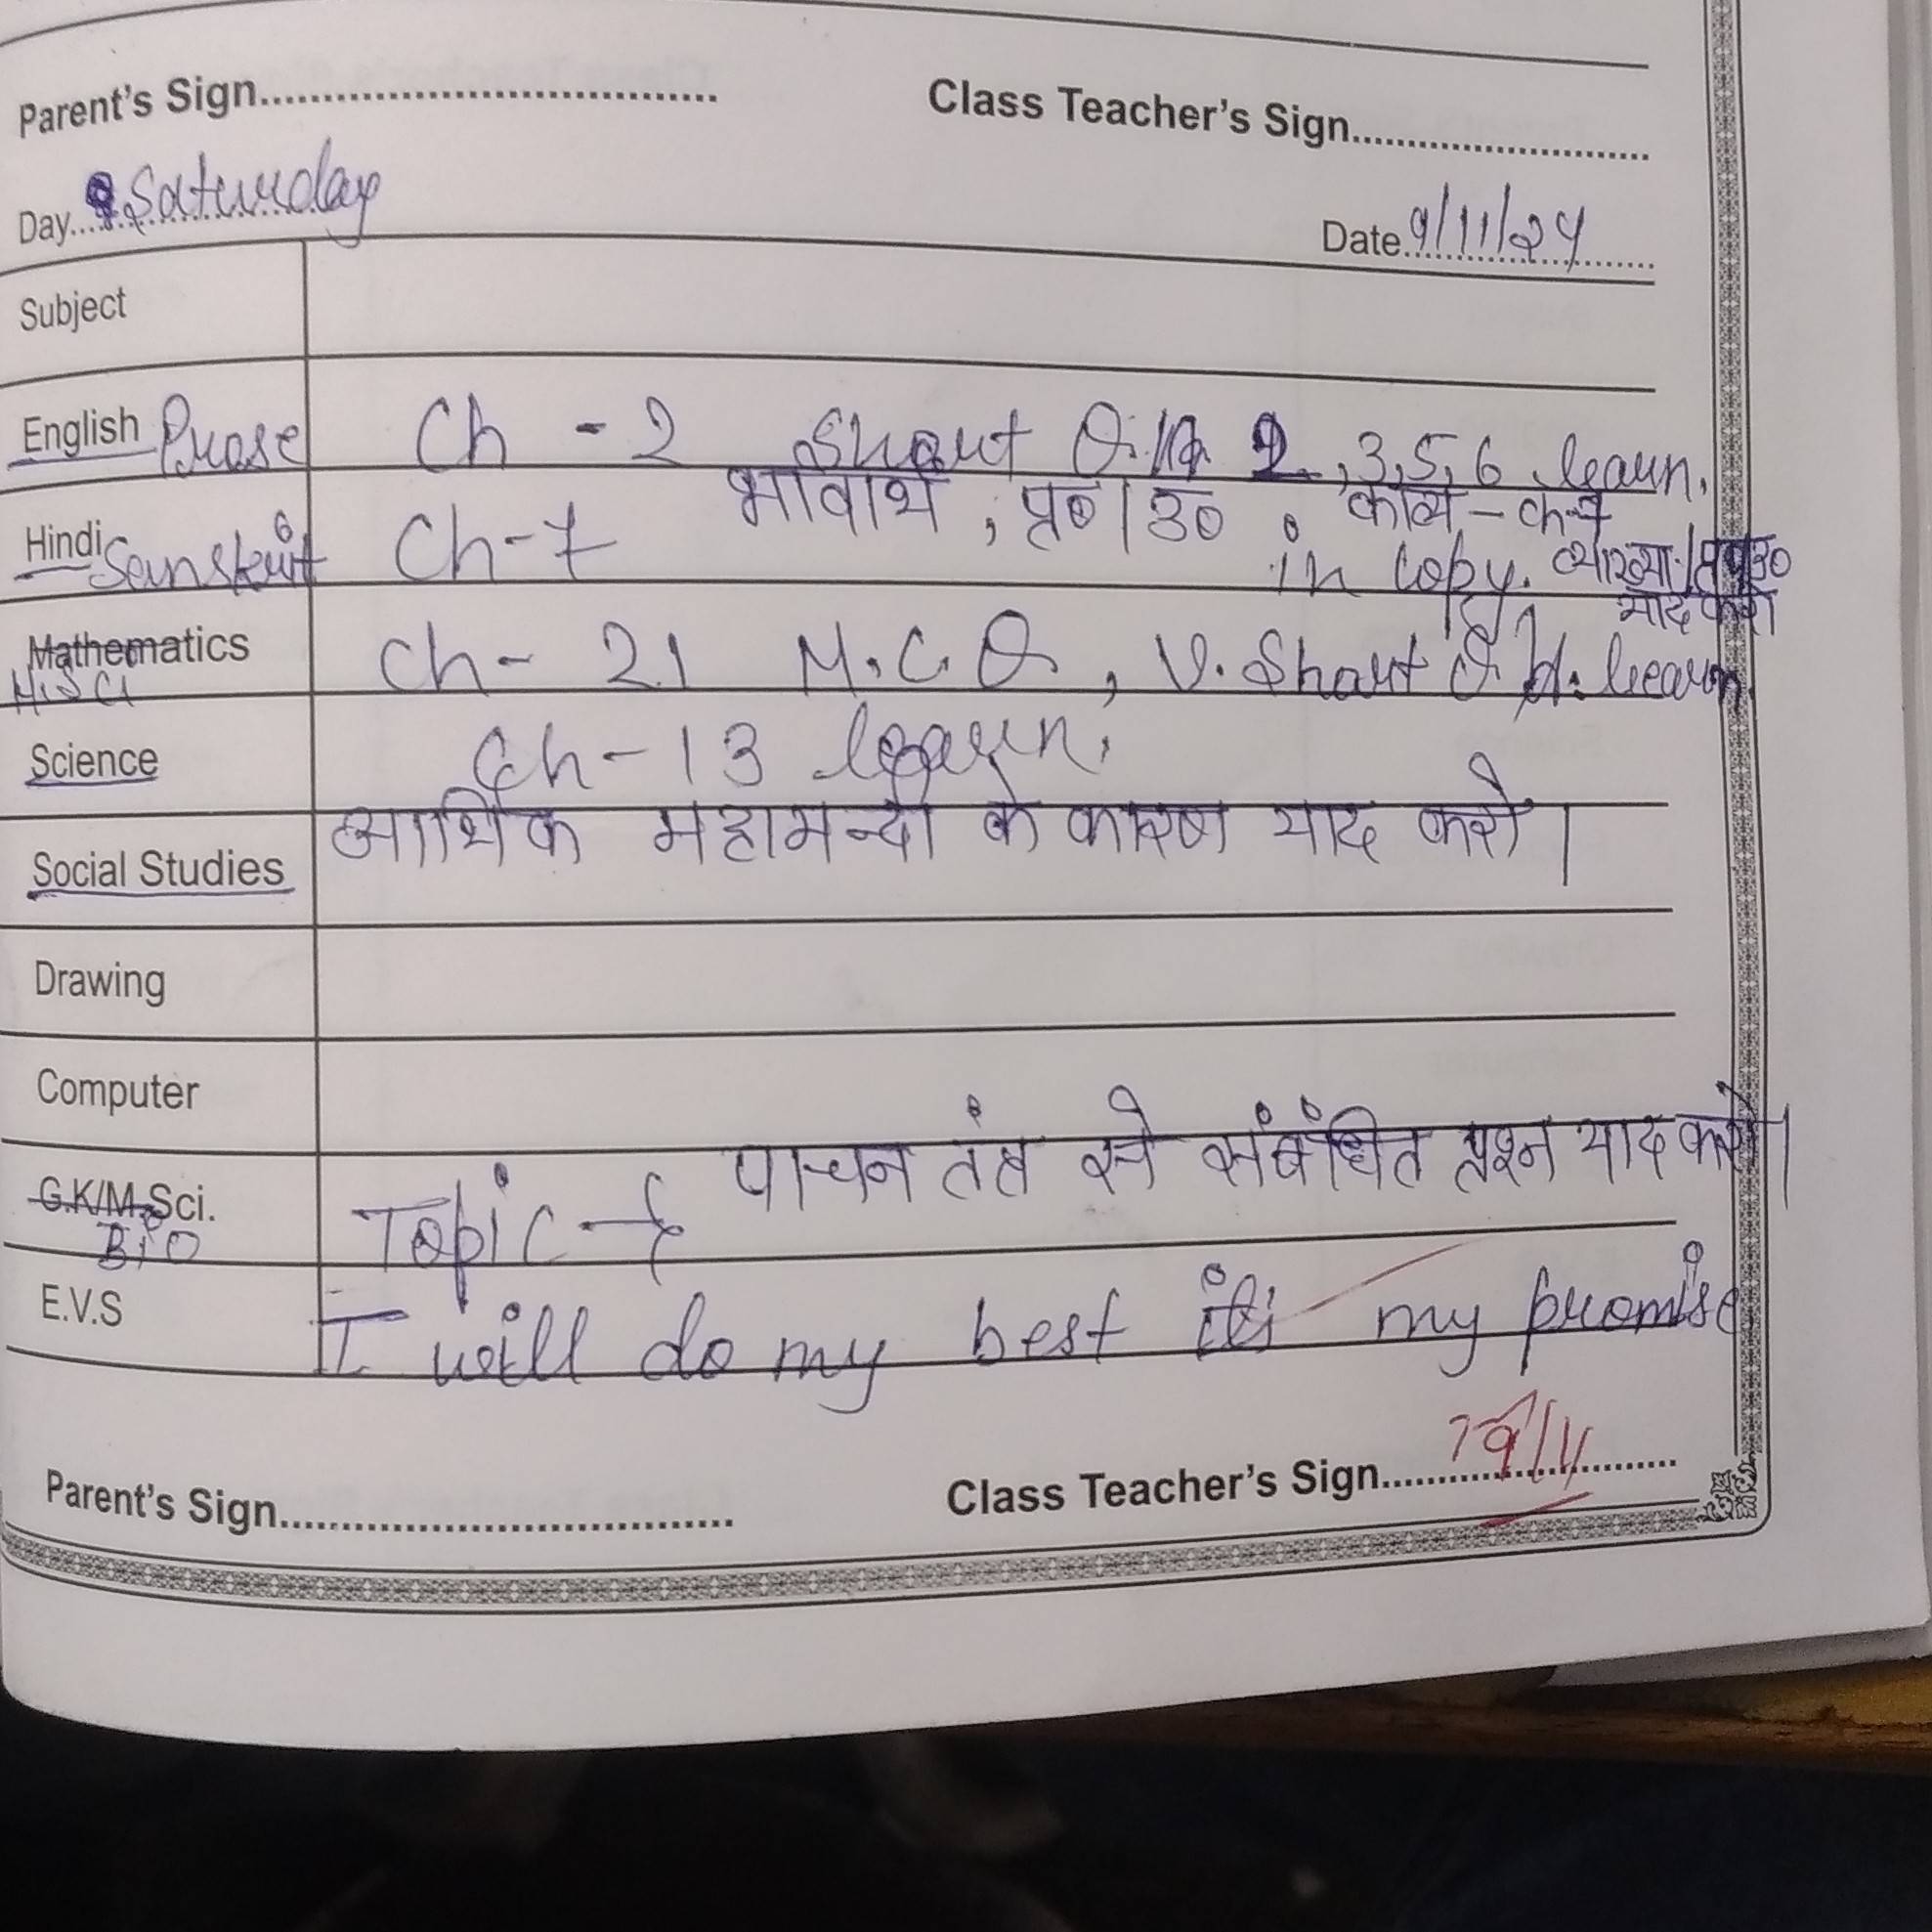 Parent's Sign.................................... Class Teacher's Sign............................
Day.... Saturday
Date 9/11/24
Subject
English Prose Ch - 2 Short Q. 2, 3, 5, 6 learn.
Hindi Sanskrit Ch-7 भावार्थ, प्र०/उ० in copy. काव्य - ch-7
व्याख्या / प्र०उ०
याद करो
Mathematics
H.Sci Ch - 21 M.C.Q, V. Short Q learn.
Science Ch - 13 learn.
Social Studies आर्थिक महामन्दी के कारण याद करो।
Drawing
Computer
G.K/M.Sci.
Bio Topic - { पाचन तंत्र से संबंधित प्रश्न याद करो।
E.V.S I will do my best its my promise
9/11
Parent's Sign.................................... Class Teacher's Sign............................